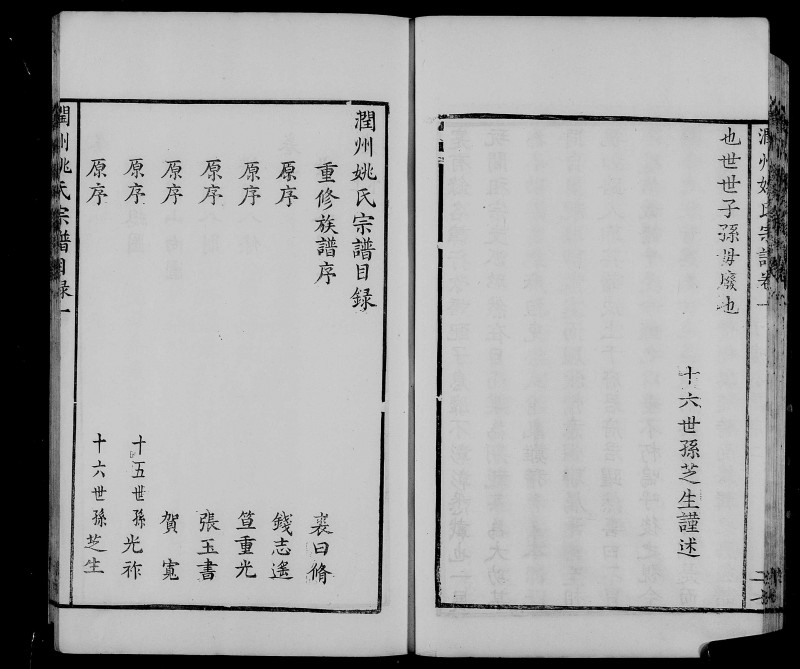 潤州姚氏宗譜卷一
也世世子孫毋廢也
十六世孫芝生謹述
潤州姚氏宗譜目録
重修族譜序 襄曰脩
原序 錢志遙
原序 笪重光
原序 張玉書
原序 賀寬
原序 十五世孫光祚
原序 十六世孫芝生
潤州姚氏宗譜目録一